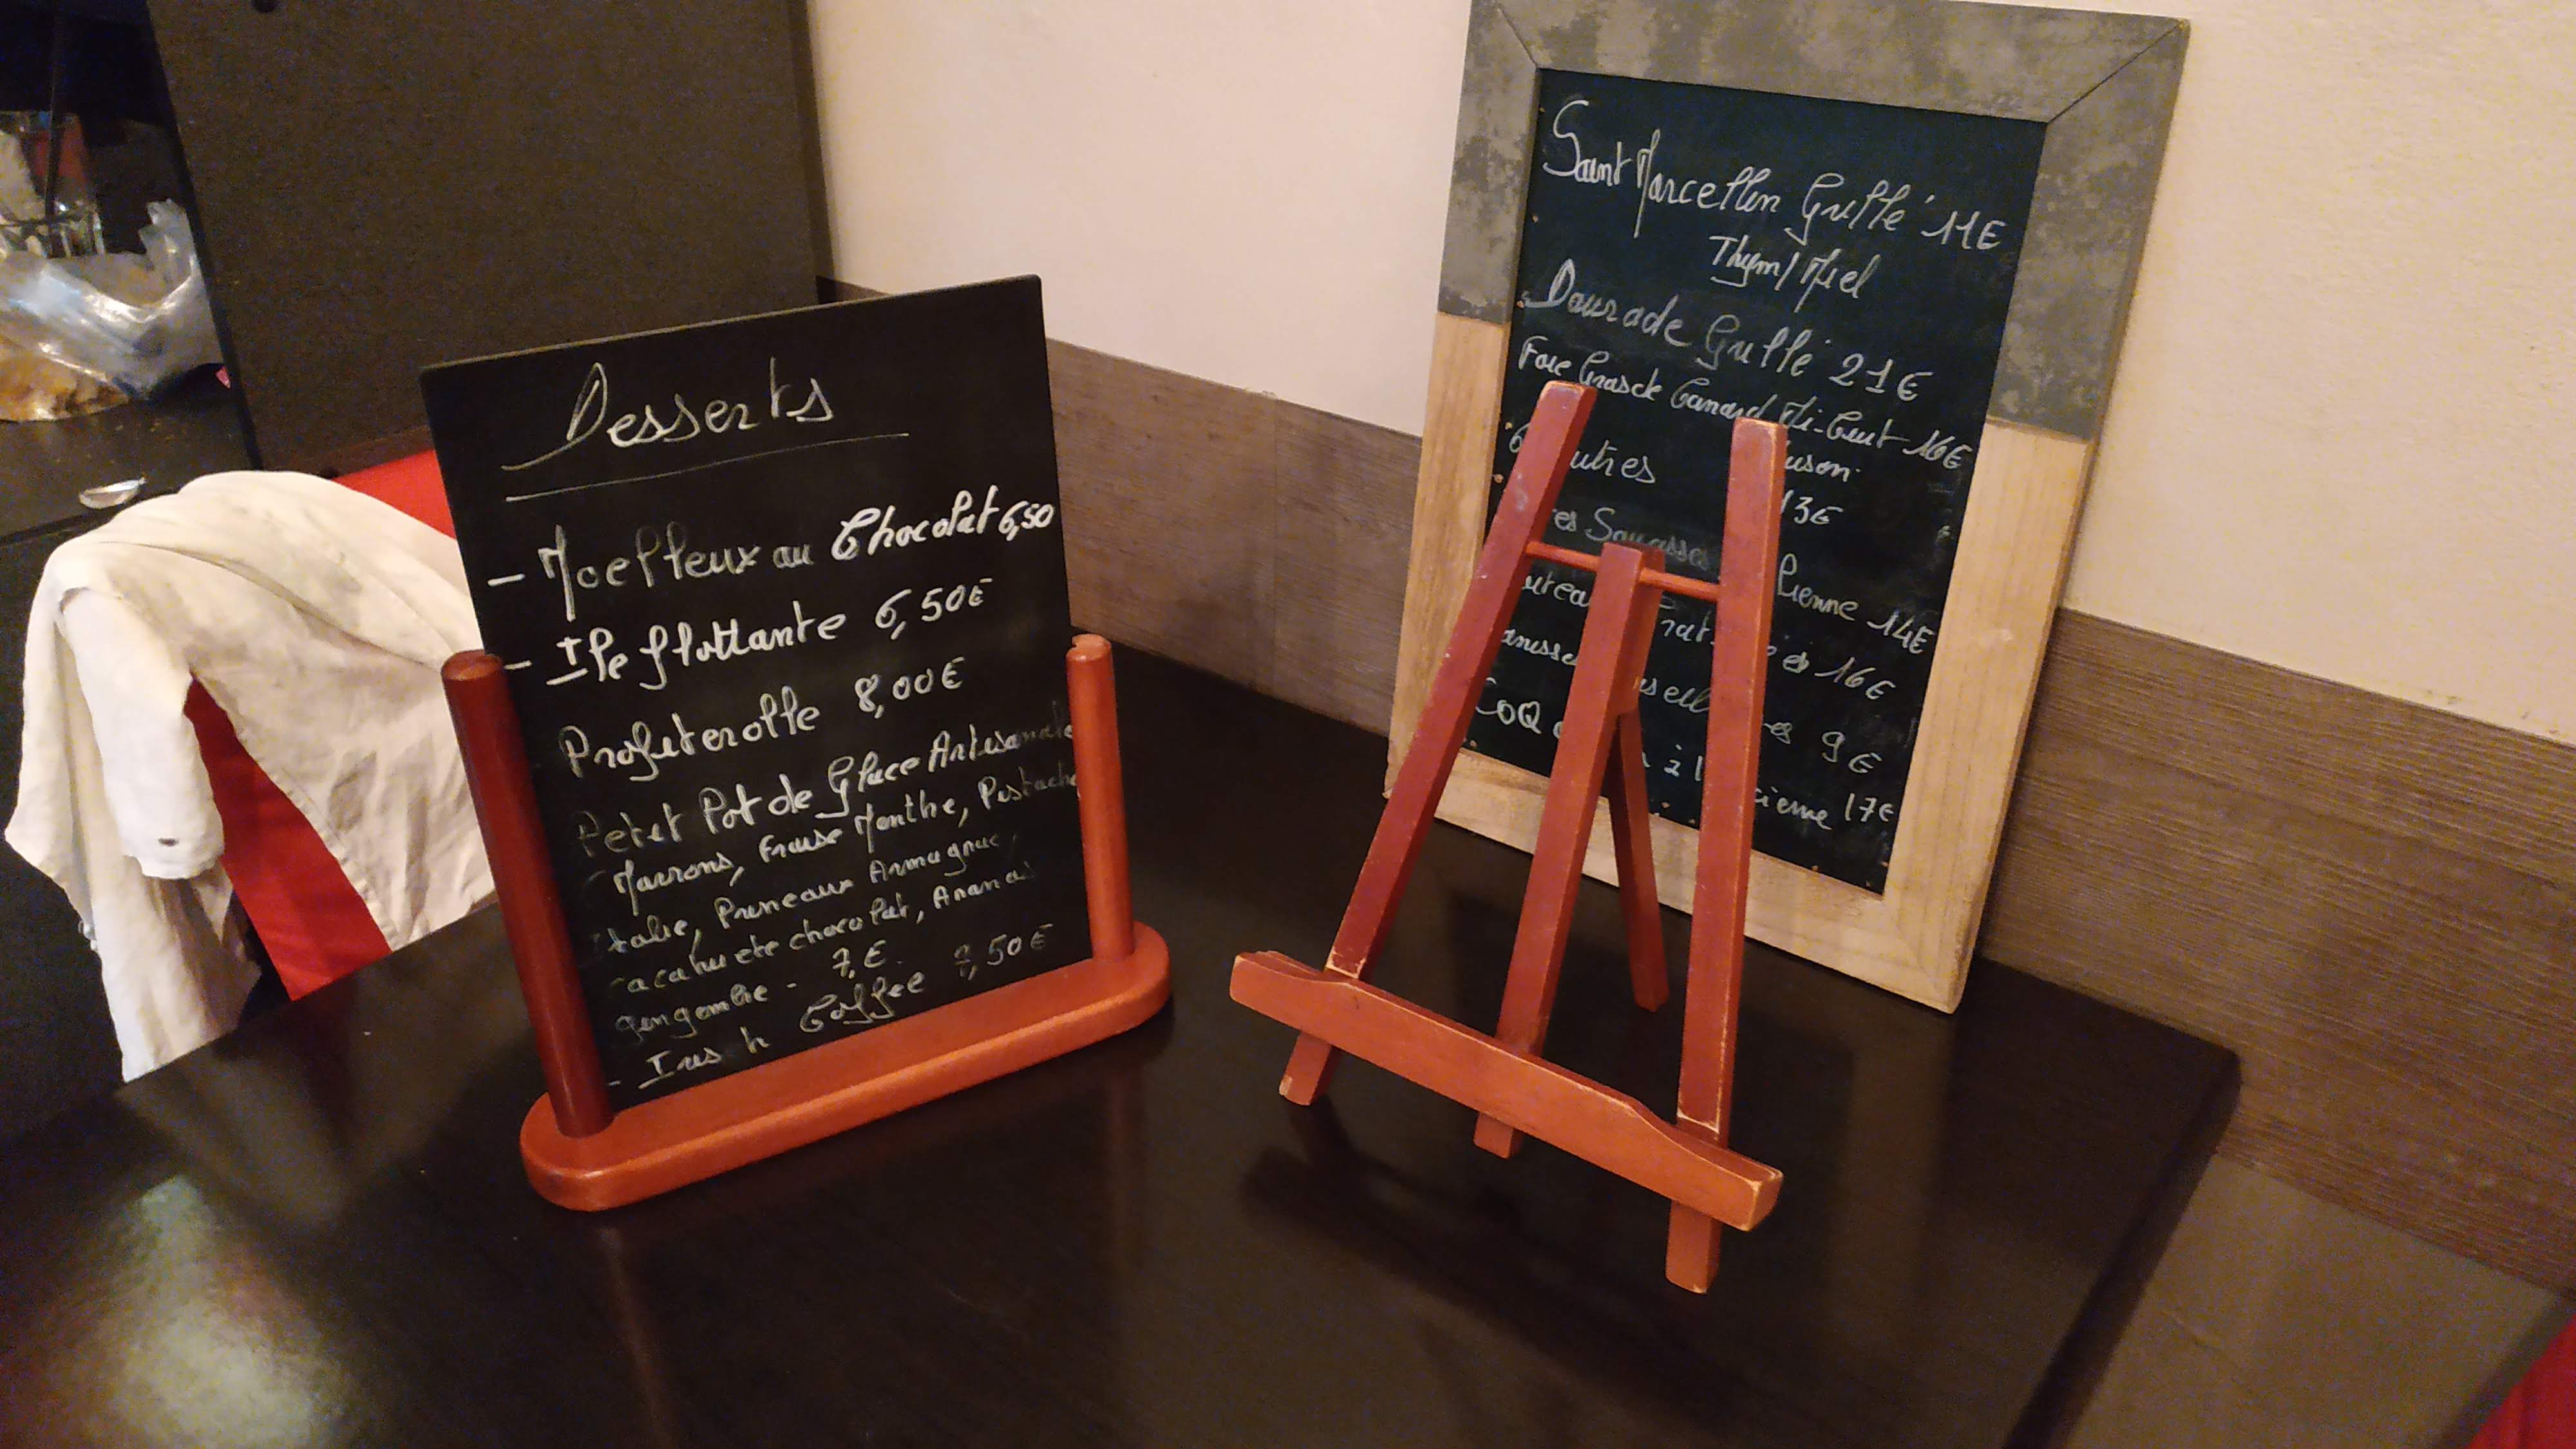 Desserts
- Moelleux au Chocolat 6,50
- Ile flottante 6,50€
Profiterolle 8,00€
Petit Pot de Glace Artisanale
Marrons, Fraise Menthe, Pistache
Italie, Pruneaux Armagnac,
cacahuete chocolat, Ananas
gengembre - 7,€.
- Irish Coffee 9,50€
Saint Marcellin Grillé 11€
Thym/Miel
Daurade Grillé 21€
Foie Gras de Canard Mi-Cuit 16€
uison
utres 13€
es Souasse lienne 14€
16€
9€
COQ à l cienne 17€